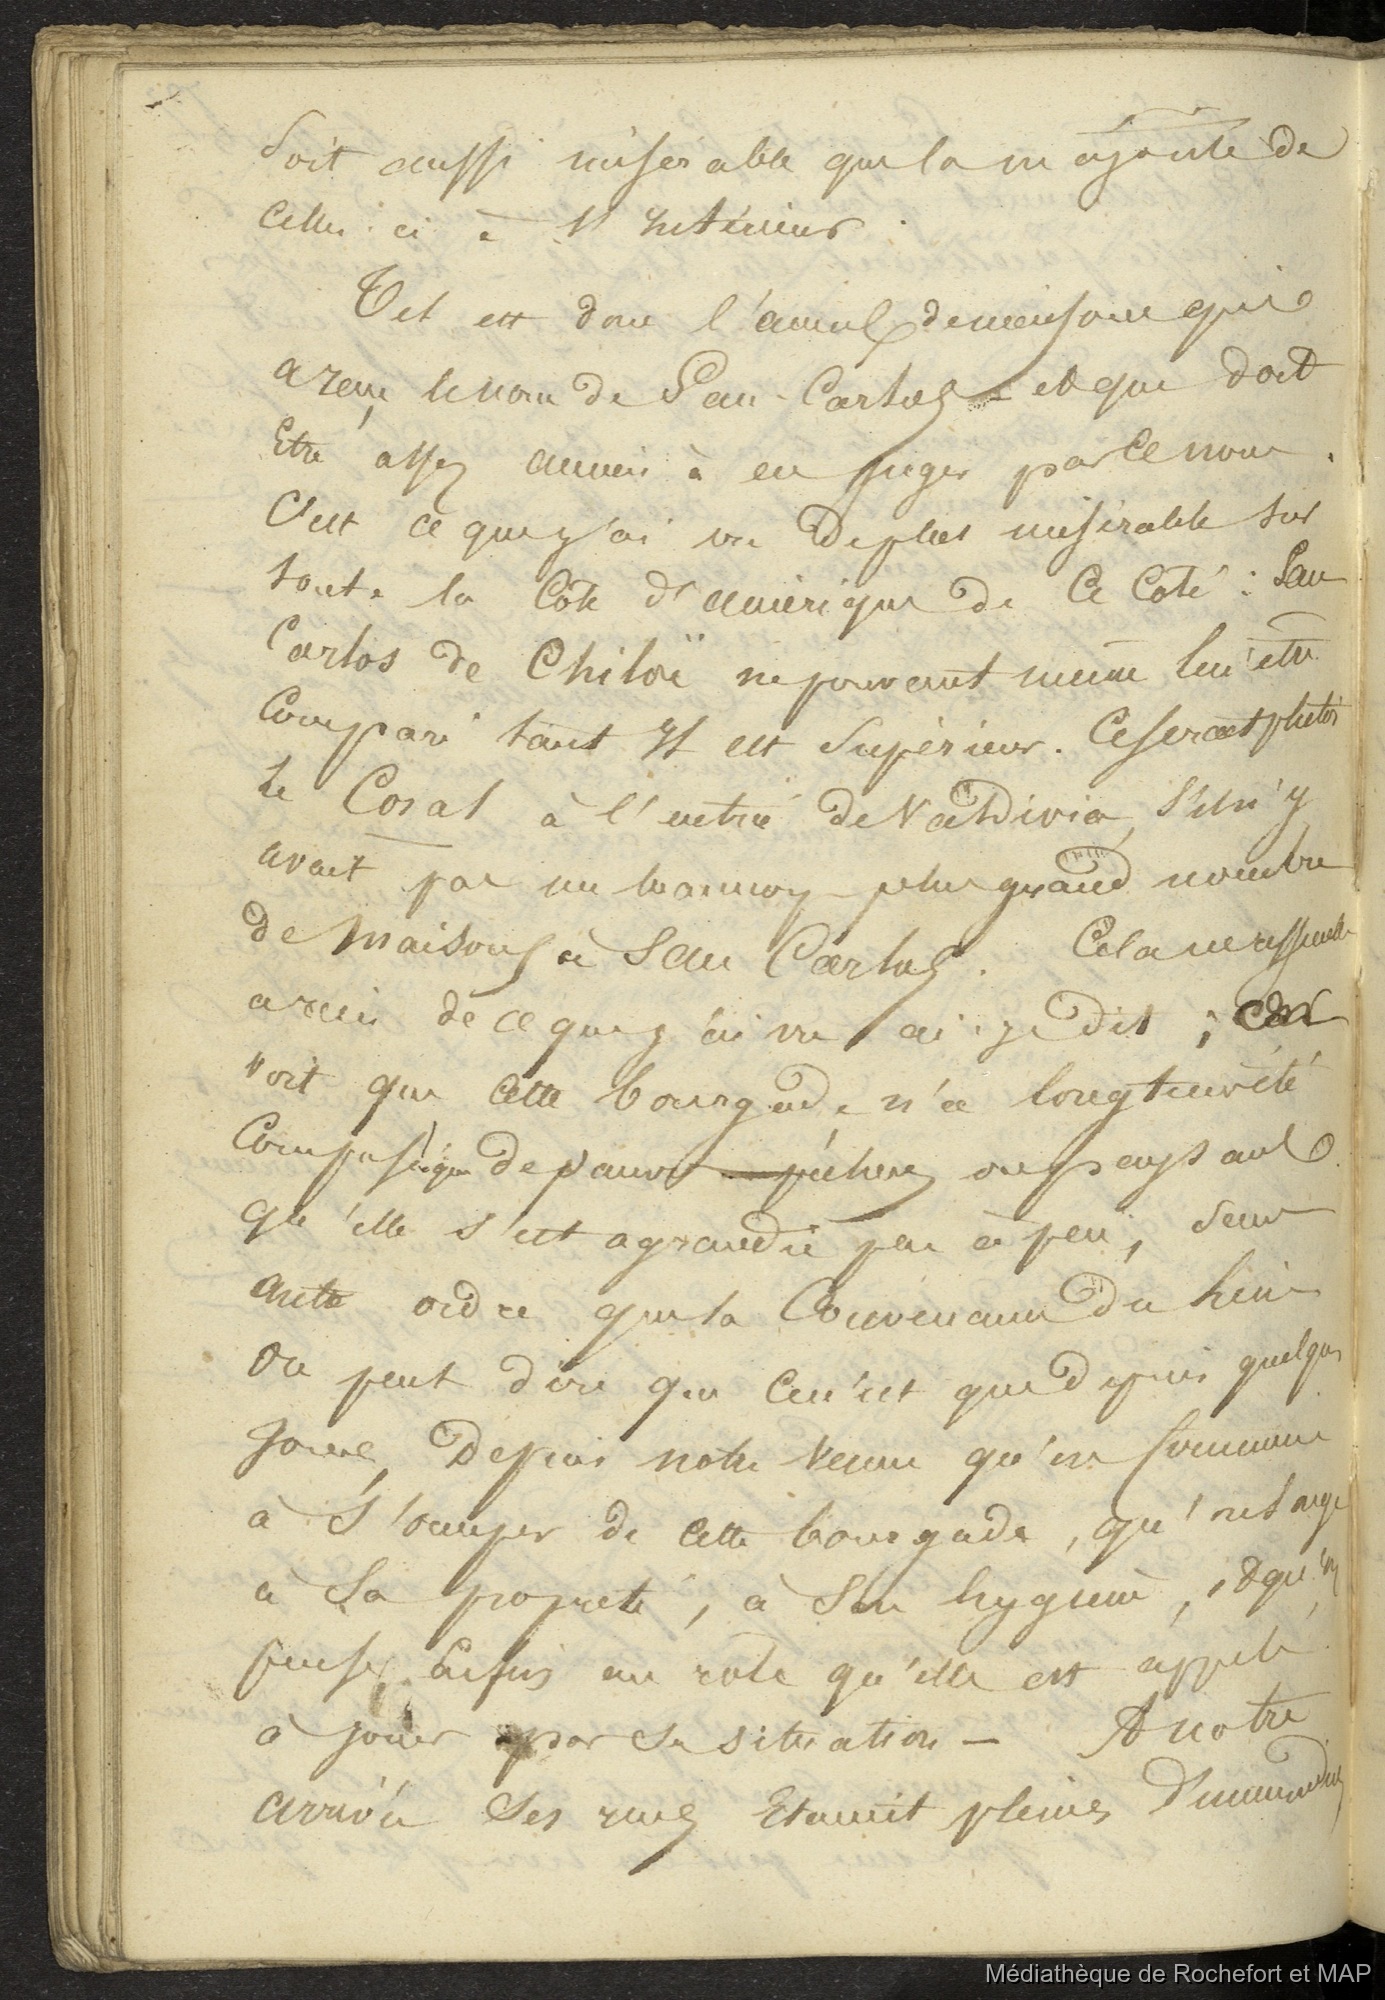 soit aussi misérable que la majorité de
celles-ci à l'intérieur.
Tel est donc l'amas de maisons qui
a reçu le nom de San-Carlos – et que doit
Etre assez ancien à en juger par ce nom.
C'est ce que j'ai vu de plus misérable sur
toute la Côte d'amérique de ce Coté : San
Carlos de Chiloï ne pouvant meme lui etre
Comparé tant Il est Supérieur. Ce serait plutôt
le Coral à l'entrée de Valdivia, s'il n'y
avait pas un beaucoup plus grand nombre
de Maisons à San Carlos. Cela ne ressemble
a rien de ce que j'ai vu ai-je dit ; car
voit que cette bourgade n'a longtems été
Composée que de pauvres pécheurs ou paysans
qu'elle s'est agrandie peu à peu, sans
autre ordre que la Convenance du lieu
On peut dire que ce n'est que depuis quelques
jours, Depuis notre Venue qu'on commence
à s'occuper de cette bourgade, qu'on songe
à Sa propreté, à Son hygiène, et qu'on
pense enfin au role qu'elle est appelé
à jouer par sa situation – A notre
arrivée Ses rues Etaient pleines d'immondices
Médiathèque de Rochefort et MAP